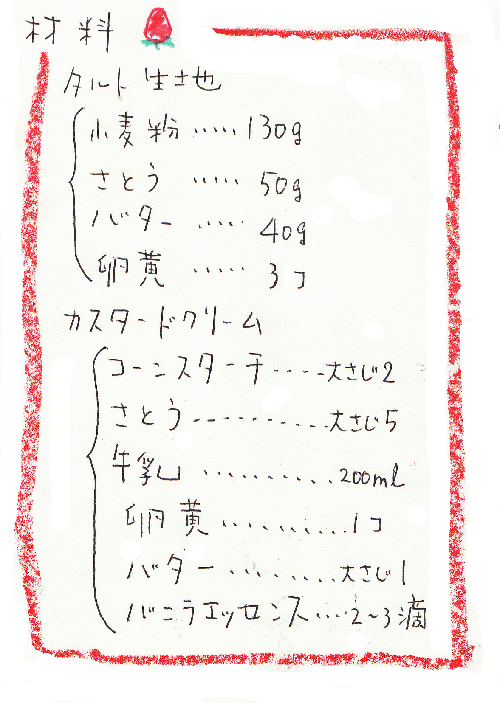 材料
タルト生地
小麦粉‥‥‥130g
さとう‥‥‥50g
バター‥‥‥40g
卵黄‥‥‥3コ
カスタードクリーム
コーンスターチ‥‥‥大さじ2
さとう‥‥‥‥‥大さじ5
牛乳‥‥‥‥‥200ml
卵黄‥‥‥‥‥1コ
バター‥‥‥‥大さじ1
バニラエッセンス‥‥2~3滴